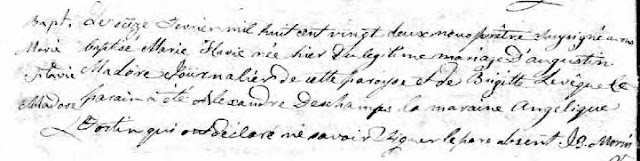 Bapt. Le onze Fevrier mil huit cent vingt deux nous prêtre soussigné avons
Marie baptisé Marie Flavie née hier du legitime mariage d'augustin
Flavie Madore Journalier de cette paroisse et de Brigitte Levêque le
Madore parain à été Alexandre Deschamps la maraine Angelique
Fortin qui ont déclaré ne savoir signer le pere absent. J. Morin